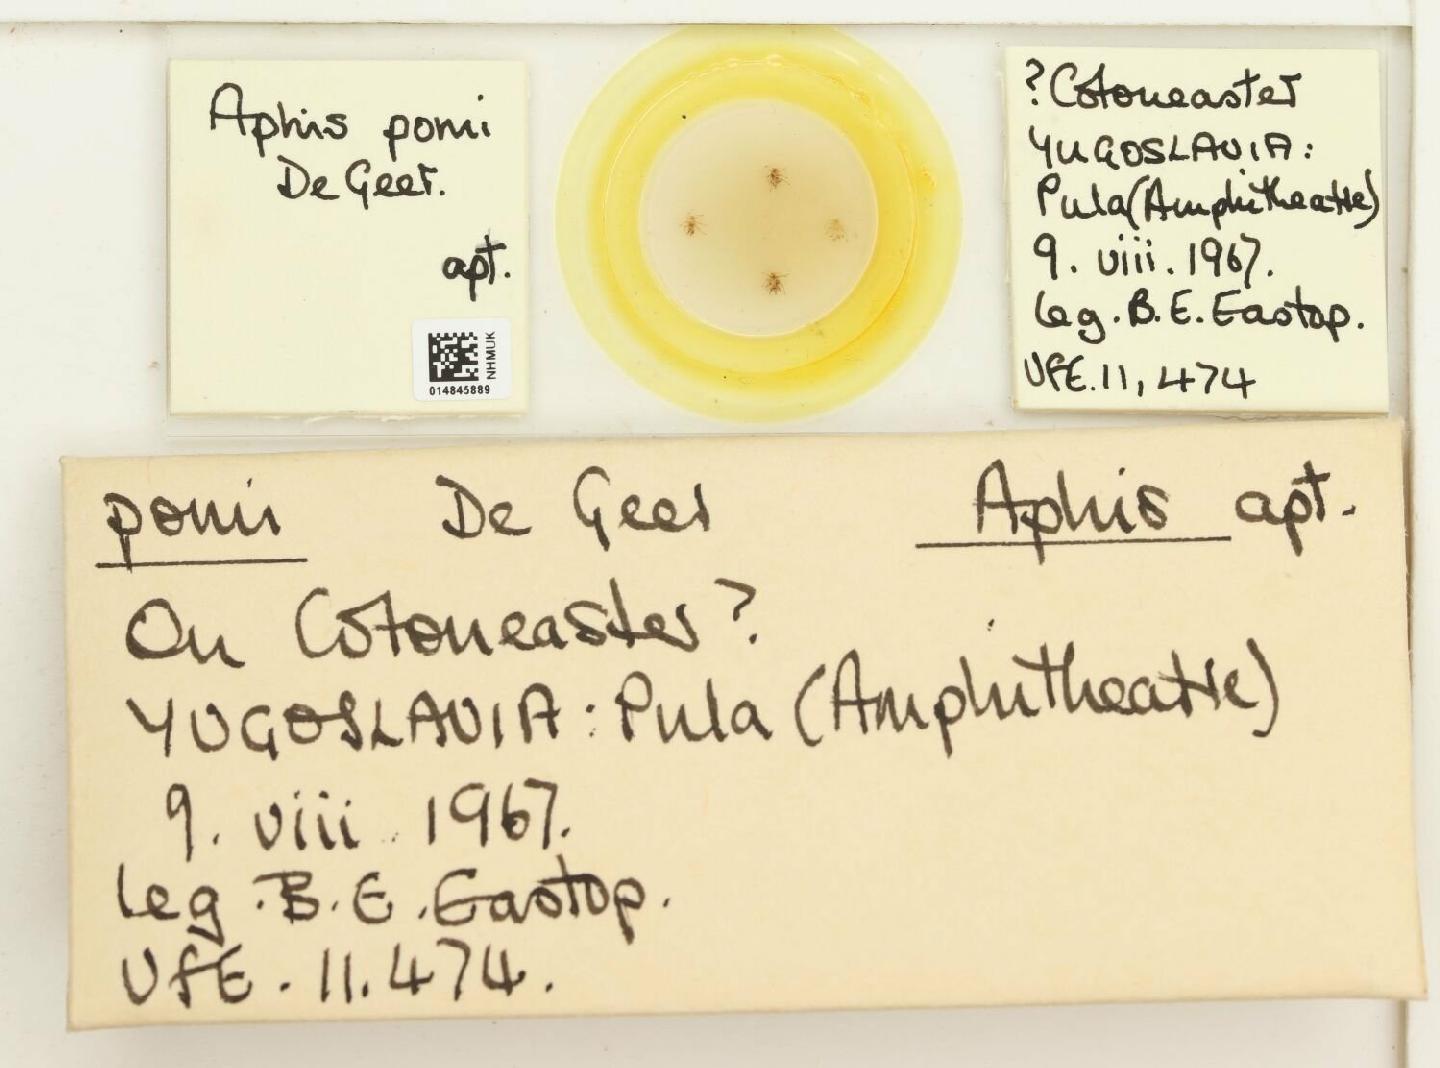 Aphis pomi
De Geer.
apt.
NHMUK
014845889
?Cotoneaster
YUGOSLAVIA:
Pula (Amphitheatre)
9. viii. 1967.
leg. B. E. Eastop.
VFE. 11, 474
pomi De Geer Aphis apt.
On Cotoneaster?
YUGOSLAVIA: Pula (Amphitheatre)
9. viii. 1967.
leg. B. E. Eastop.
VFE. 11. 474.